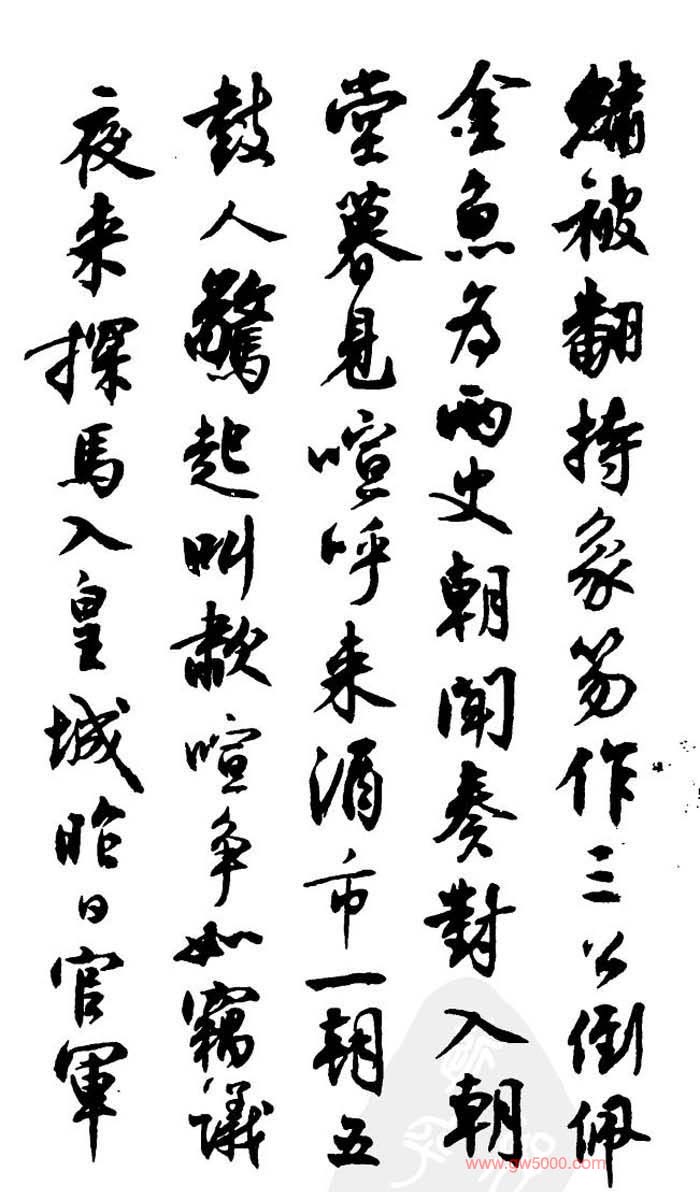 鏽被翻持象笏作三公倒佩
金魚为两史朝聞奏對入朝
堂暮見喧呼来酒市一朝五
鼓人驚起叫歗喧争如竊議
夜来探馬入皇城昨日官軍
www.gw5000.com